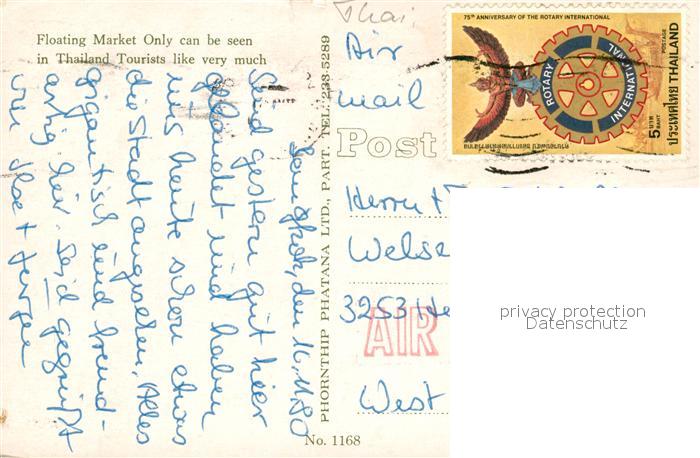 Thai.
Floating Market Only can be seen
in Thailand Tourists like very much
Bangkok, den 16.11.80
Sind gestern gut hier
gelandet und haben
uns heute schon etwas
die Stadt angesehen. Alles
gigantisch und fremd-
artig hier. Seid gegrüßt
von + Jürgen
PHORNTHIP PHATANA LTD., PART. TEL. 233-5289
No. 1168
Air
mail
Post
75th ANNIVERSARY OF THE ROTARY INTERNATIONAL
ROTARY
INTERNATIONAL
POSTAGE
5 บาท
BAHT
ประเทศไทย THAILAND
Herrn +
3253
AIR
West
privacy protection
Datenschutz